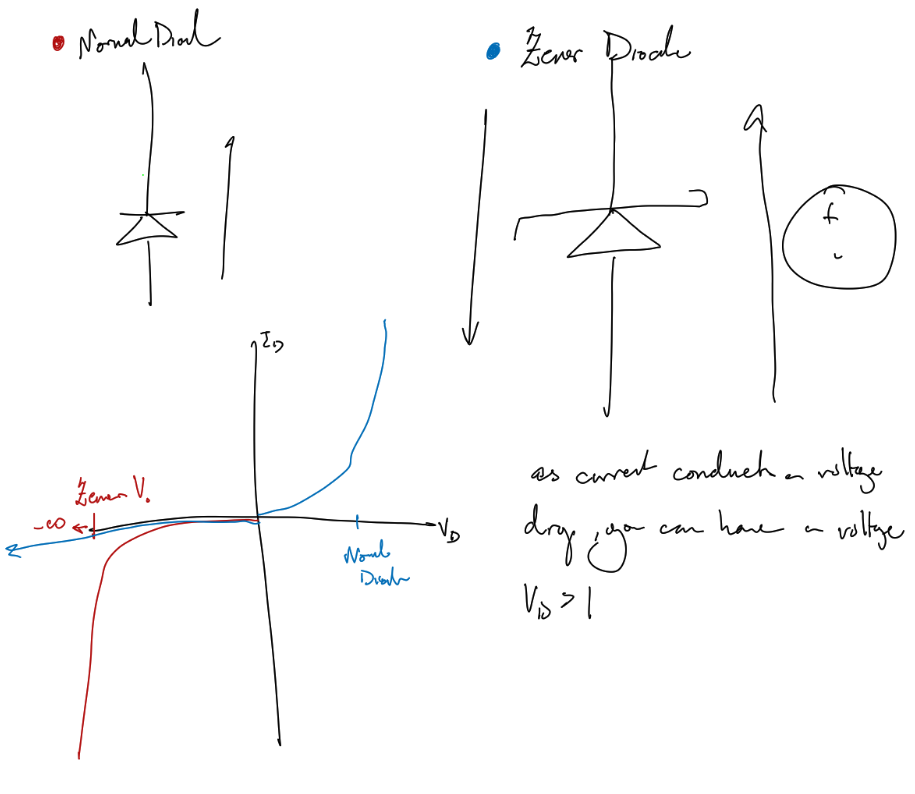 Normal Diod
Zener Diode
I_D
Zener V.
-∞
V_D
Normal
Diode
as current conducts a voltage
drop, you can have a voltage
V_D > 1